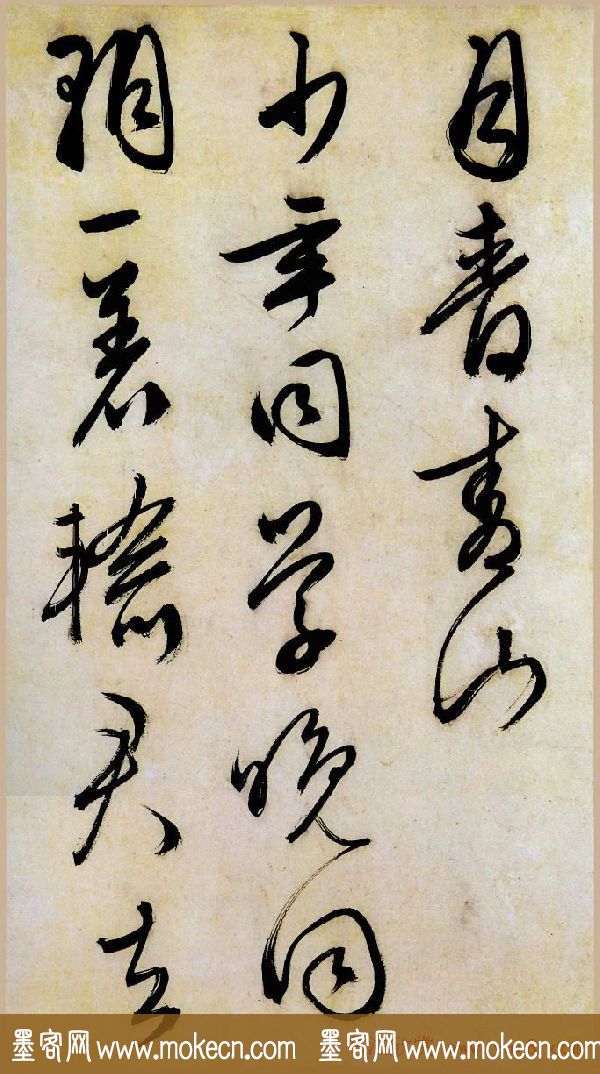 月青山
少年同学晚同
朝一著輸君去
墨客网 www.mokecn.com 墨客网 www.mokecn.com